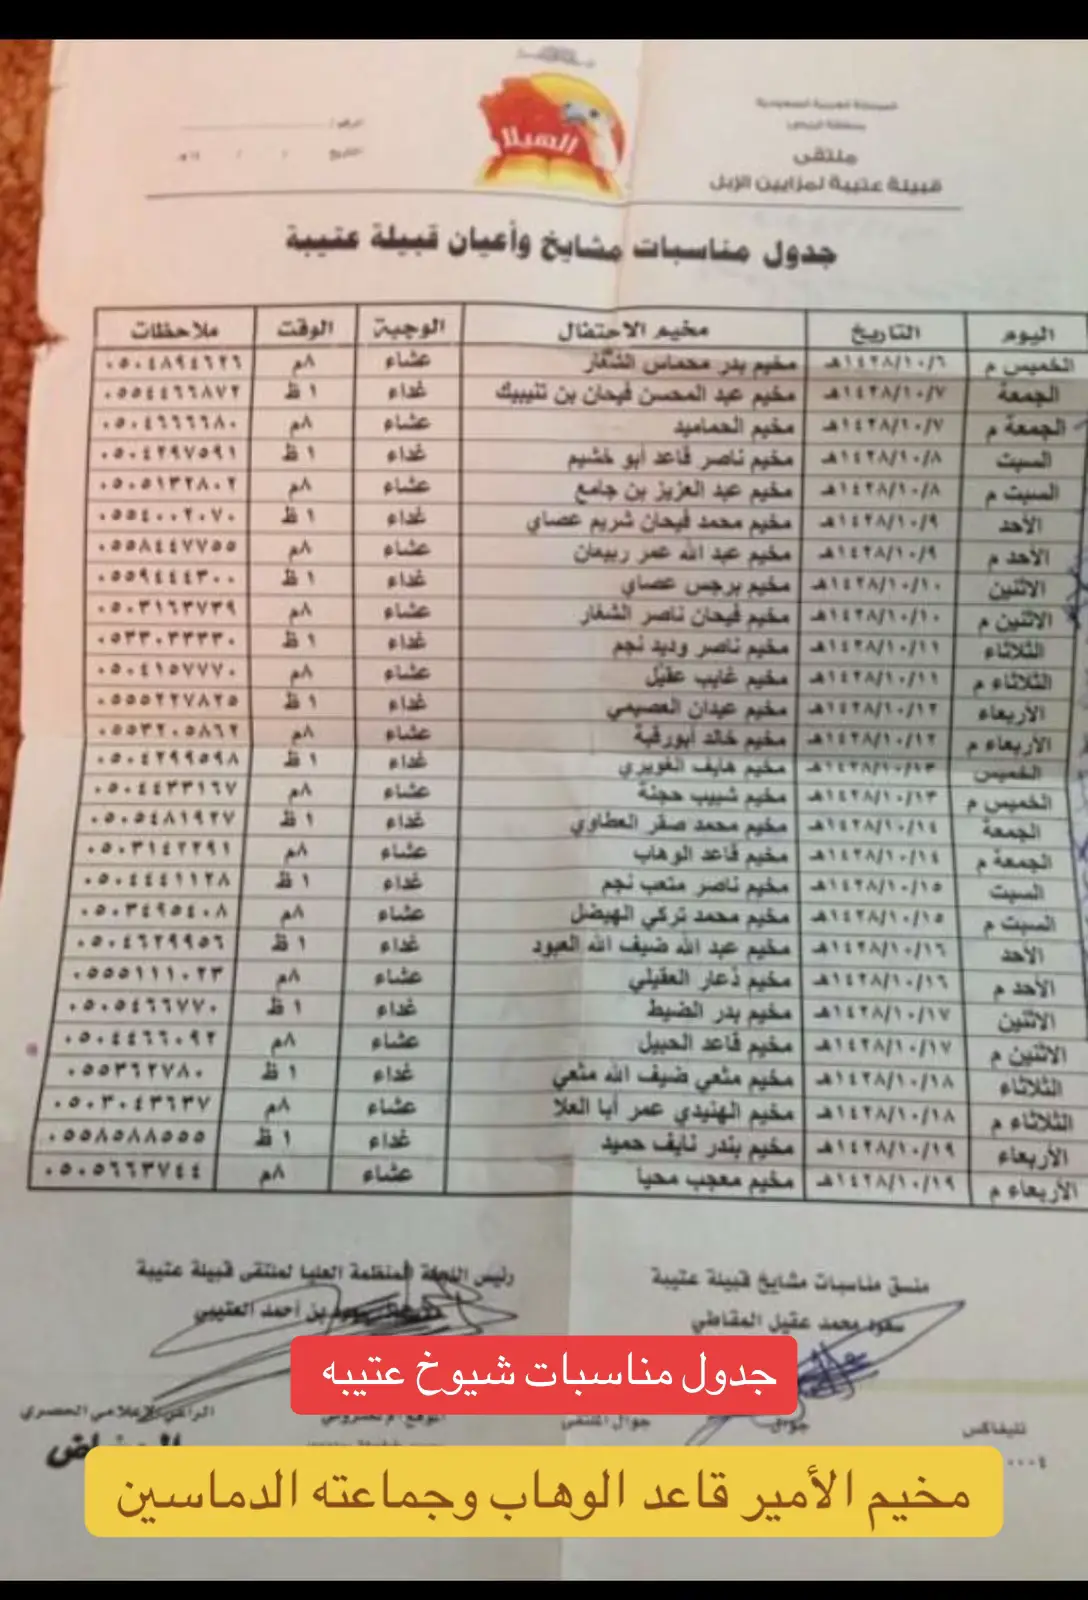 المملكة العربية السعودية
ملتقى
قبيلة عتيبة لمزايين الإبل
الهيلا
الرقم /
التاريخ / /
جدول مناسبات مشايخ وأعيان قبيلة عتيبة
اليوم التاريخ مخيم الاحتفال الوجبة الوقت ملاحظات
الخميس م ١٤٢٨/١٠/٦هـ مخيم بدر محماس الشغار عشاء ٨م ٠٥٠٤٨٩٤٦٢٦
الجمعة ١٤٢٨/١٠/٧هـ مخيم عبد المحسن فيحان بن تنيبيك غداء ١ ظ ٠٥٥٤٤٦٦٨٧٢
الجمعة م ١٤٢٨/١٠/٧هـ مخيم الحماميد عشاء ٨م ٠٥٠٤٦٦٦٦٨٠
السبت ١٤٢٨/١٠/٨هـ مخيم ناصر قاعد أبو خشيم غداء ١ ظ ٠٥٠٤٢٩٧٥٩١
السبت م ١٤٢٨/١٠/٨هـ مخيم عبد العزيز بن جامع عشاء ٨م ٠٥٠٥١٣٢٨٠٢
الأحد ١٤٢٨/١٠/٩هـ مخيم محمد فيحان شريم عصاي غداء ١ ظ ٠٥٥٤٠٠٢٠٧٠
الأحد م ١٤٢٨/١٠/٩هـ مخيم عبد الله عمر ربيعان عشاء ٨م ٠٥٥٨٤٤٧٧٥٥
الاثنين ١٤٢٨/١٠/١٠هـ مخيم برجس عصاي غداء ١ ظ ٠٥٥٩٤٤٤٣٠٠
الاثنين م ١٤٢٨/١٠/١٠هـ مخيم فيحان ناصر الشغار عشاء ٨م ٠٥٠٣١٦٣٧٣٩
الثلاثاء ١٤٢٨/١٠/١١هـ مخيم ناصر وديد نجم غداء ١ ظ ٠٥٣٣٠٣٣٣٣٠
الثلاثاء م ١٤٢٨/١٠/١١هـ مخيم غايب عقيل عشاء ٨م ٠٥٠٤١٥٧٧٧٠
الأربعاء ١٤٢٨/١٠/١٢هـ مخيم عيدان العصيمي غداء ١ ظ ٠٥٥٥٢٢٧٨٢٥
الأربعاء م ١٤٢٨/١٠/١٢هـ مخيم خالد أبورقبة عشاء ٨م ٠٥٥٣٢٠٥٨٦٢
الخميس ١٤٢٨/١٠/١٣هـ مخيم هايف الغويري غداء ١ ظ ٠٥٠٤٢٩٩٥٩٨
الخميس م ١٤٢٨/١٠/١٣هـ مخيم شبيب حجنة عشاء ٨م ٠٥٠٤٤٣٣١٦٧
الجمعة ١٤٢٨/١٠/١٤هـ مخيم محمد صقر العطاوي غداء ١ ظ ٠٥٠٥٤٨١٩٢٧
الجمعة م ١٤٢٨/١٠/١٤هـ مخيم قاعد الوهاب عشاء ٨م ٠٥٠٣١٤٢٢٩١
السبت ١٤٢٨/١٠/١٥هـ مخيم ناصر متعب نجم غداء ١ ظ ٠٥٠٤٤٤١١٢٨
السبت م ١٤٢٨/١٠/١٥هـ مخيم محمد تركي الهيضل عشاء ٨م ٠٥٠٣٤٩٥٤٠٨
الأحد ١٤٢٨/١٠/١٦هـ مخيم عبد الله ضيف الله العبود غداء ١ ظ ٠٥٠٤٦٢٩٩٥٦
الأحد م ١٤٢٨/١٠/١٦هـ مخيم ذعار العقيلي عشاء ٨م ٠٥٥٥١١١٠٢٣
الاثنين ١٤٢٨/١٠/١٧هـ مخيم بدر الضيط غداء ١ ظ ٠٥٠٥٤٦٦٧٧٠
الاثنين م ١٤٢٨/١٠/١٧هـ مخيم قاعد الحبيل عشاء ٨م ٠٥٠٤٤٦٦٠٩٢
الثلاثاء ١٤٢٨/١٠/١٨هـ مخيم مثعي ضيف الله مثعي غداء ١ ظ ٠٥٥٣٦٢٧٨٠
الثلاثاء م ١٤٢٨/١٠/١٨هـ مخيم الهنيدي عمر أبا العلا عشاء ٨م ٠٥٠٣٠٤٣٦٣٧
الأربعاء ١٤٢٨/١٠/١٩هـ مخيم بندر نايف حميد غداء ١ ظ ٠٥٥٨٥٨٨٥٥٥
الأربعاء م ١٤٢٨/١٠/١٩هـ مخيم معجب محيا عشاء ٨م ٠٥٠٥٦٦٣٧٤٤
منسق مناسبات مشايخ قبيلة عتيبة
سعود محمد عقيل المقاطي
رئيس اللجنة المنظمة العليا لملتقى قبيلة عتيبة
بن أحمد العتيبي
جدول مناسبات شيوخ عتيبه
تليفاكس جوال جوال الملتقى الموقع الإلكتروني الراعي الإعلامي الحصري
مخيم الأمير قاعد الوهاب وجماعته الدماسين